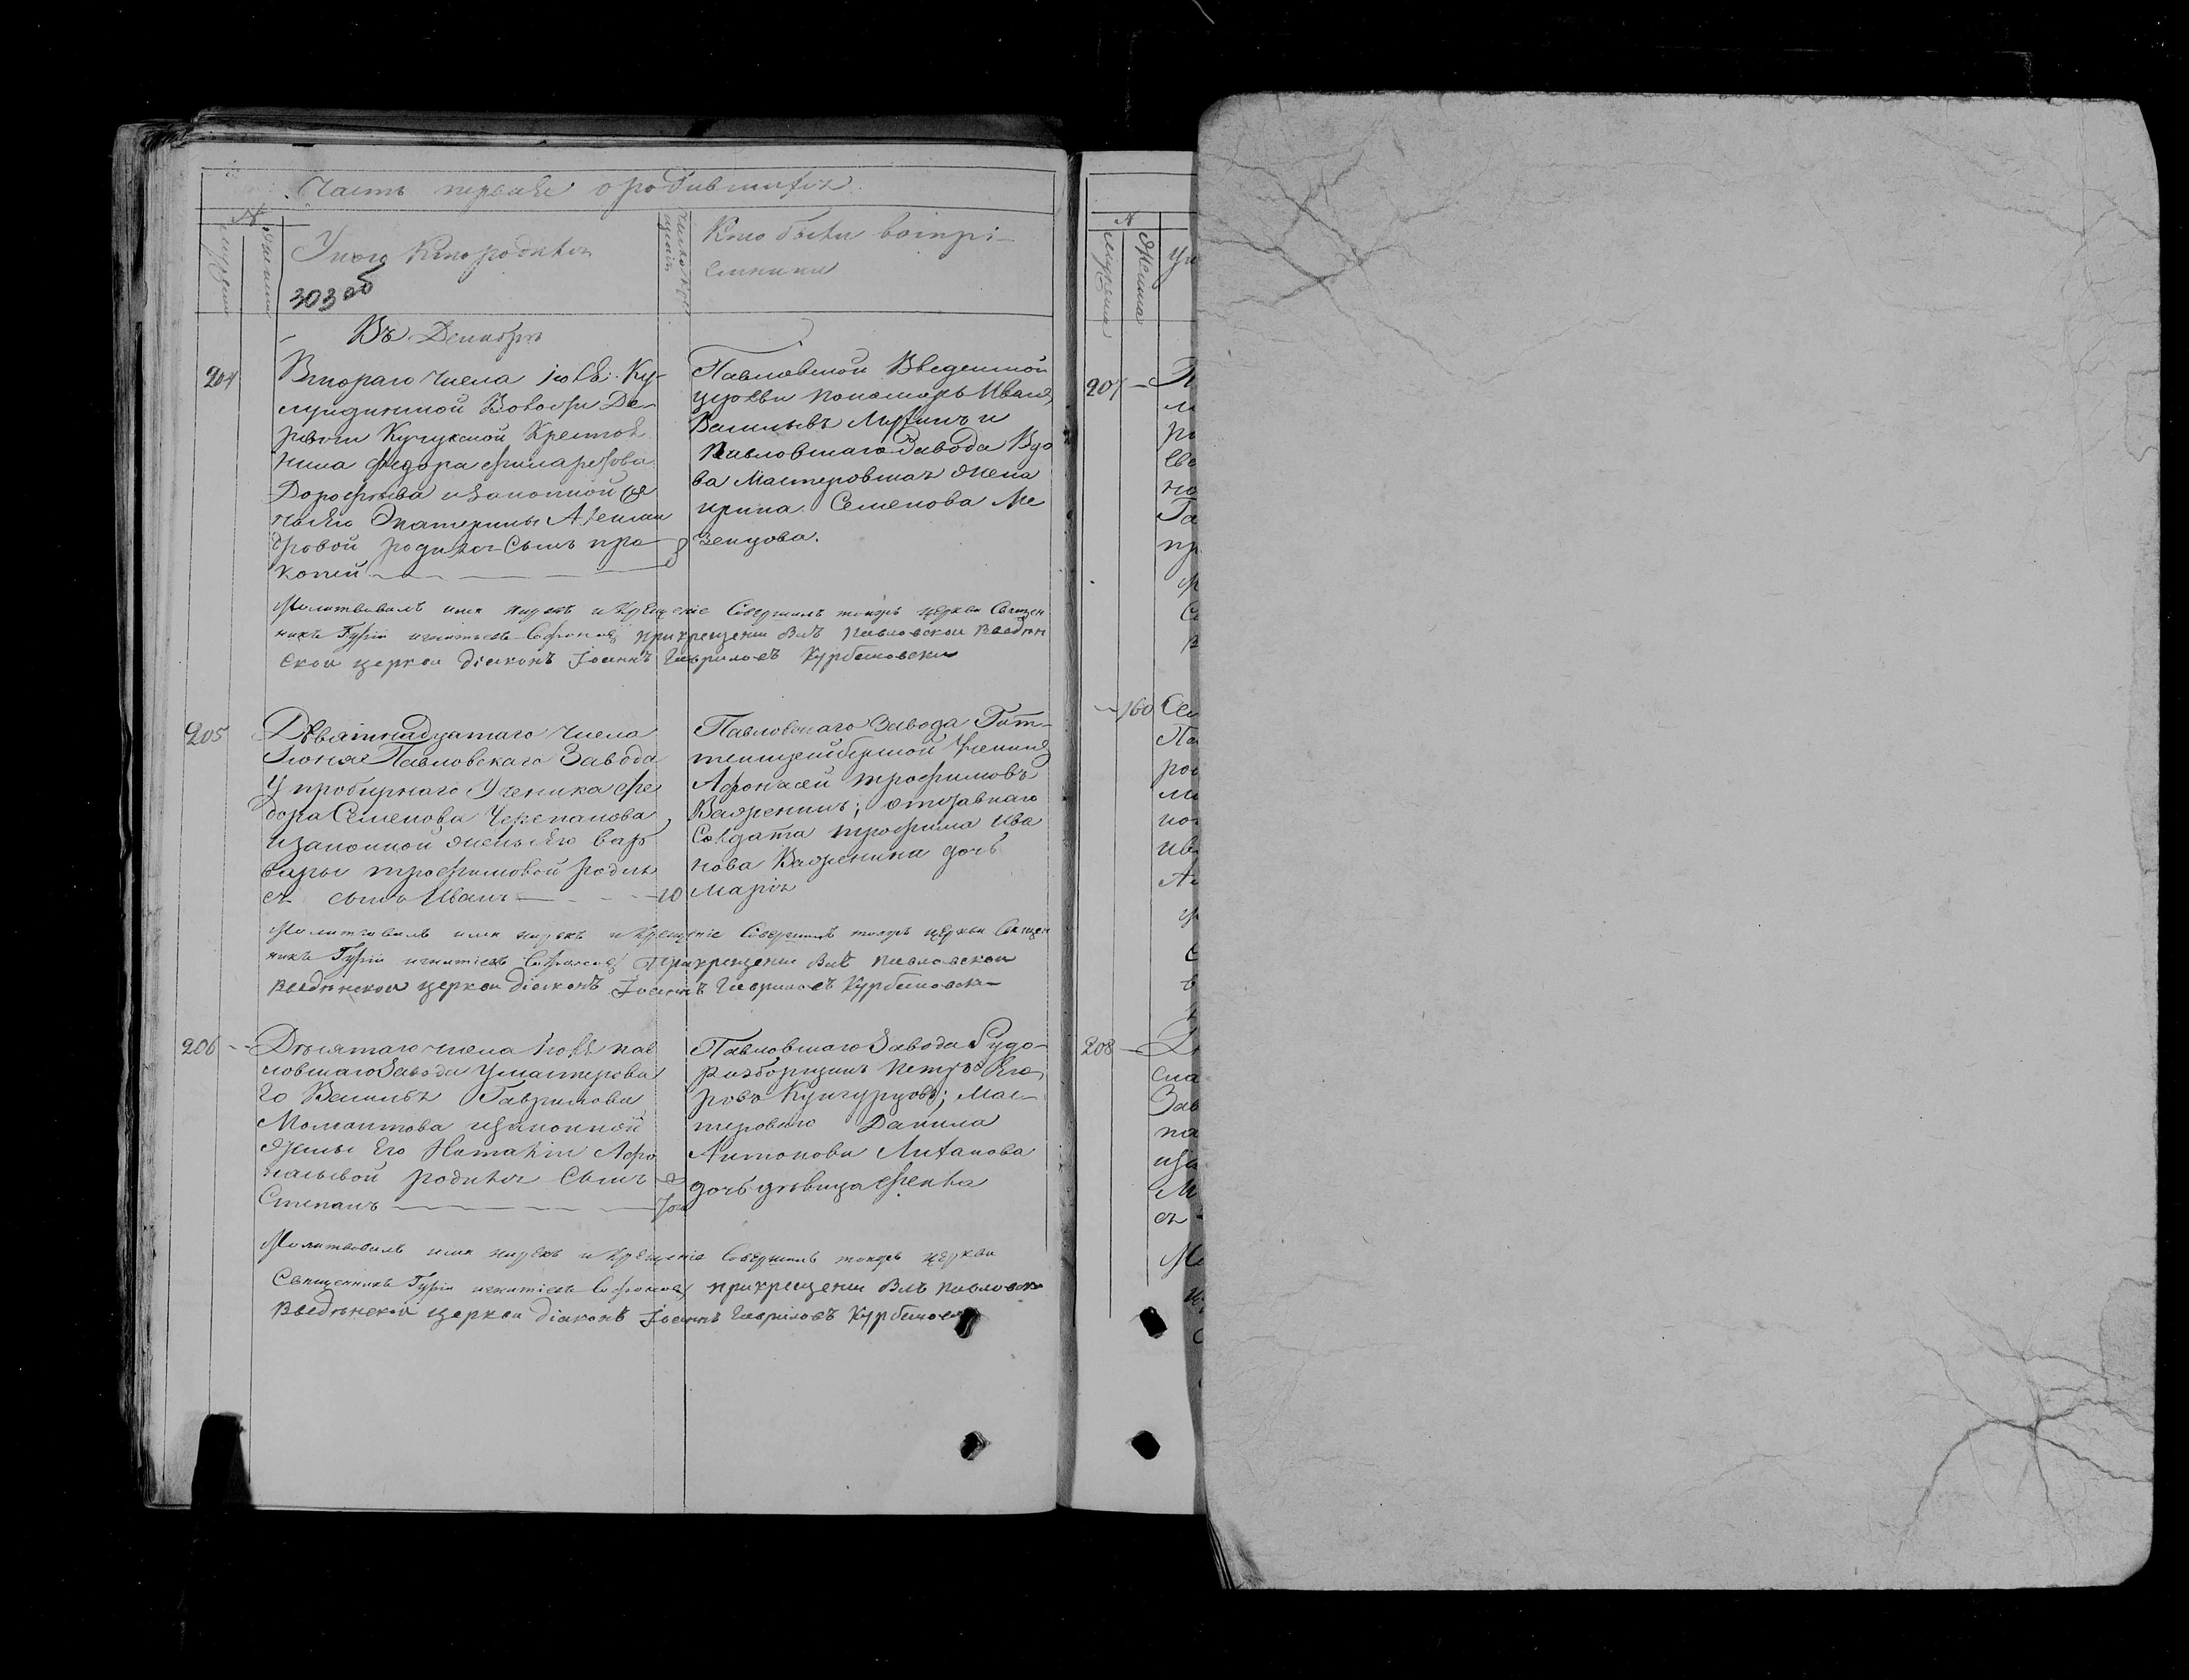 Часть первая о родившихся
№
Мужеска
Женска
У кого кто родился
303 об
Число крещенія
Кто были воспрі-
емники
Въ Декабрѣ
204
Втораго числа
Деревни Кучукской Крестья
нина Федора
Дорофѣева и законной же
ны его Екатерины Алексан
дровой родился Сынъ про
копей
8
Павловской Введенской
церкви пономарь Иванъ
Васильевъ и
Павловскаго завода Вдо
ва Мастеровшая жена
ирина Семенова Ме
зенцова.
Молитвовалъ имя нарекъ и Крещеніе Совершилъ тояжъ церкви Священ
никъ Гурій игнатіевъ при крещеніи былъ Павловской Введен
ской церкви діаконъ Іоаннъ Гавриловъ Курбановски
205
Девятнадцатаго числа
Іюня Павловскаго Завода
У пробирнаго Ученика Фе
дора Семенова Черепанова,
и законной жены его вар
вары трофимовой родил
ся сынъ Иванъ
20
Павловскаго Завода Гит-
тенцейберской Ученикъ
Афонасей трофимовъ
Важенинъ; отставнаго
Солдата трофима ива
нова Важенина дочь
Марія
Молитвовалъ имя нарекъ и Крещеніе Совершилъ тояжъ церкви Священ
никъ Гурій игнатіевъ При крещеніи былъ Павловской
Введенской церкви діаконъ Іоаннъ Гавриловъ Курбановски
206
Десятаго числа пав
ловскаго Завода У мастерова
го Василья Гаврилова
Момонтова и законной
Жены Его Натальи Афо
насьевой родился Сынъ
Степанъ
Павловскаго Завода Рудо-
разборщикъ Петръ Его
ровъ Кунгурцовъ; Мас-
тероваго Данила
Антонова
дочь дѣвица Фекла
Молитвовалъ имя нарекъ и Крещеніе Совершилъ тояжъ церкви
Священникъ Гурій игнатіевъ при крещеніи былъ Павловск
Введенской церкви діаконъ Іоаннъ Гавриловъ Курбановск
№
Мужеска
Женска
207
160
208